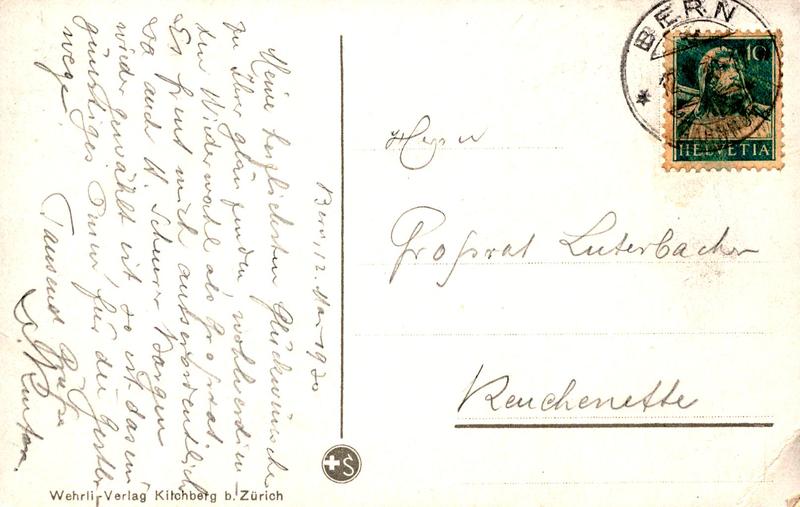 Bern, 12. Mai 1930
Meine herzlichsten Glückwünsche
zu Ihrer glänzenden, wohlverdien-
ten Wiederwahl als Grossrat.
Es freut mich ausserordentlich
Da auch H. Scheurer Bargen
wieder gewählt ist, so ist das ein
günstiges Omen für die
wege.
Tausend Grüsse
Herrn
Grossrat Luterbacher
Reuchenette
BERN
10
HELVETIA
S
Wehrli-Verlag Kilchberg b. Zürich